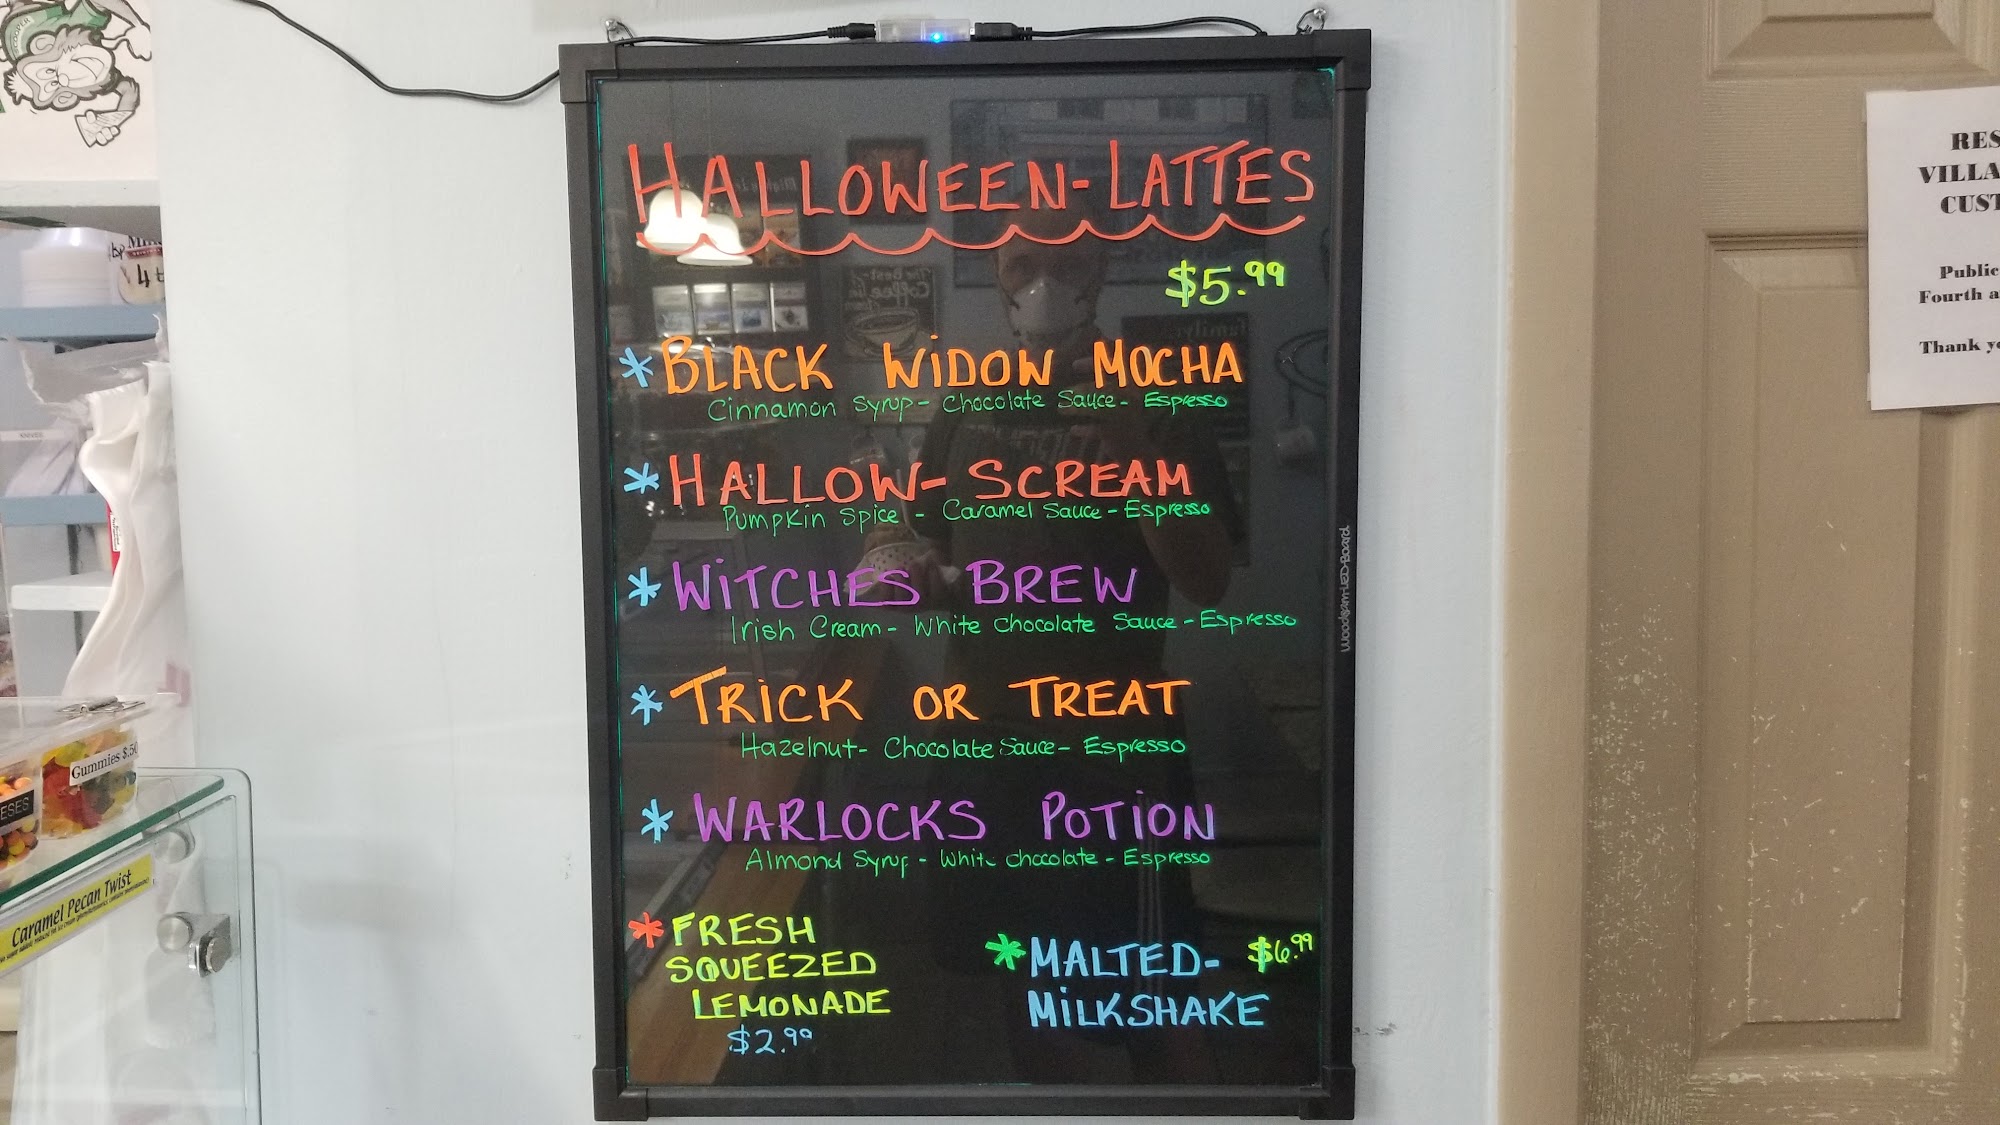 HALLOWEEN-LATTES
$5.99
*BLACK WIDOW MOCHA
Cinnamon Syrup - Chocolate Sauce - Espresso
*HALLOW-SCREAM
Pumpkin Spice - Caramel Sauce - Espresso
*WITCHES BREW
Irish Cream - White Chocolate Sauce - Espresso
*TRICK OR TREAT
Hazelnut - Chocolate Sauce - Espresso
*WARLOCKS POTION
Almond Syrup - White chocolate - Espresso
*FRESH
SQUEEZED
LEMONADE
$2.99
*MALTED- $6.99
MILKSHAKE
Woodsam-LED-Board
Gummies $.50
ESES
Caramel Pecan Twist
RES
VILLA
CUST
Public
Fourth a
Thank yo